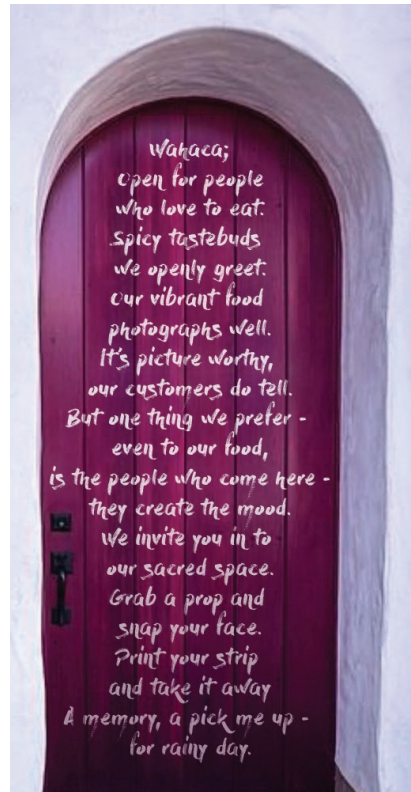 Wahaca;
Open for people
who love to eat.
Spicy tastebuds
we openly greet.
Our vibrant food
photographs well.
It's picture worthy,
our customers do tell.
But one thing we prefer -
even to our food,
is the people who come here -
they create the mood.
We invite you in to
our sacred space.
Grab a prop and
snap your face.
Print your strip
and take it away
A memory, a pick me up -
for rainy day.